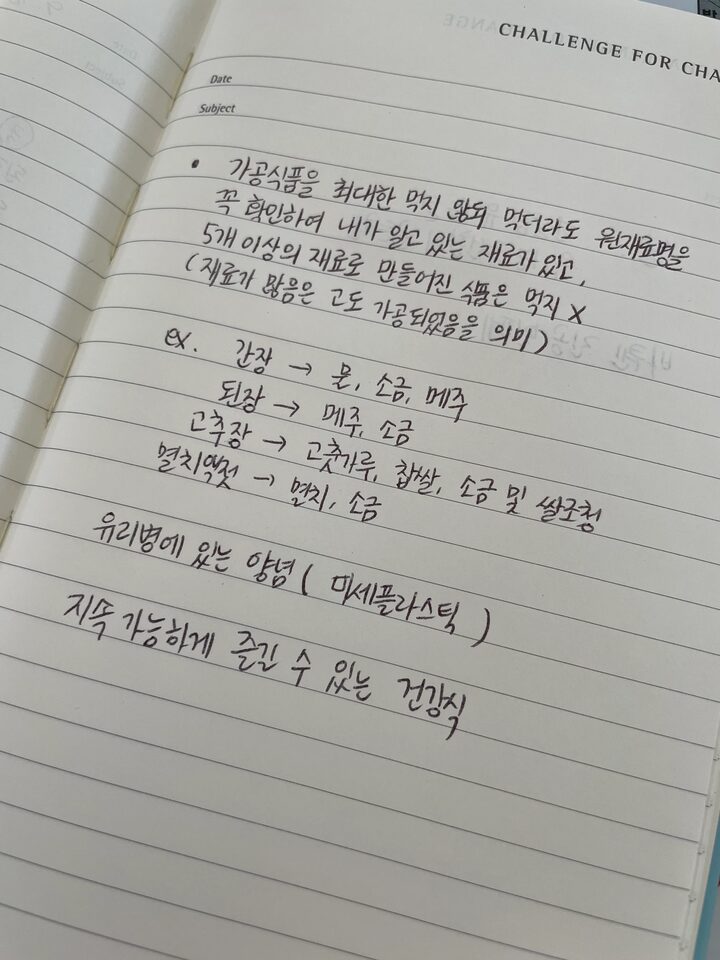 CHALLENGE FOR CHA
Date
Subject
• 가공식품을 최대한 먹지 않되 먹더라도 원재료명을
꼭 확인하여 내가 알고 있는 재료가 있고,
5개 이상의 재료로 만들어진 식품은 먹지 X
(재료가 많음은 고도 가공되었음을 의미)
ex. 간장 → 물, 소금, 메주
된장 → 메주, 소금
고추장 → 고춧가루, 찹쌀, 소금 및 쌀조청
멸치액젓 → 멸치, 소금
유리병에 있는 양념 ( 미세플라스틱 )
지속 가능하게 즐길 수 있는 건강식